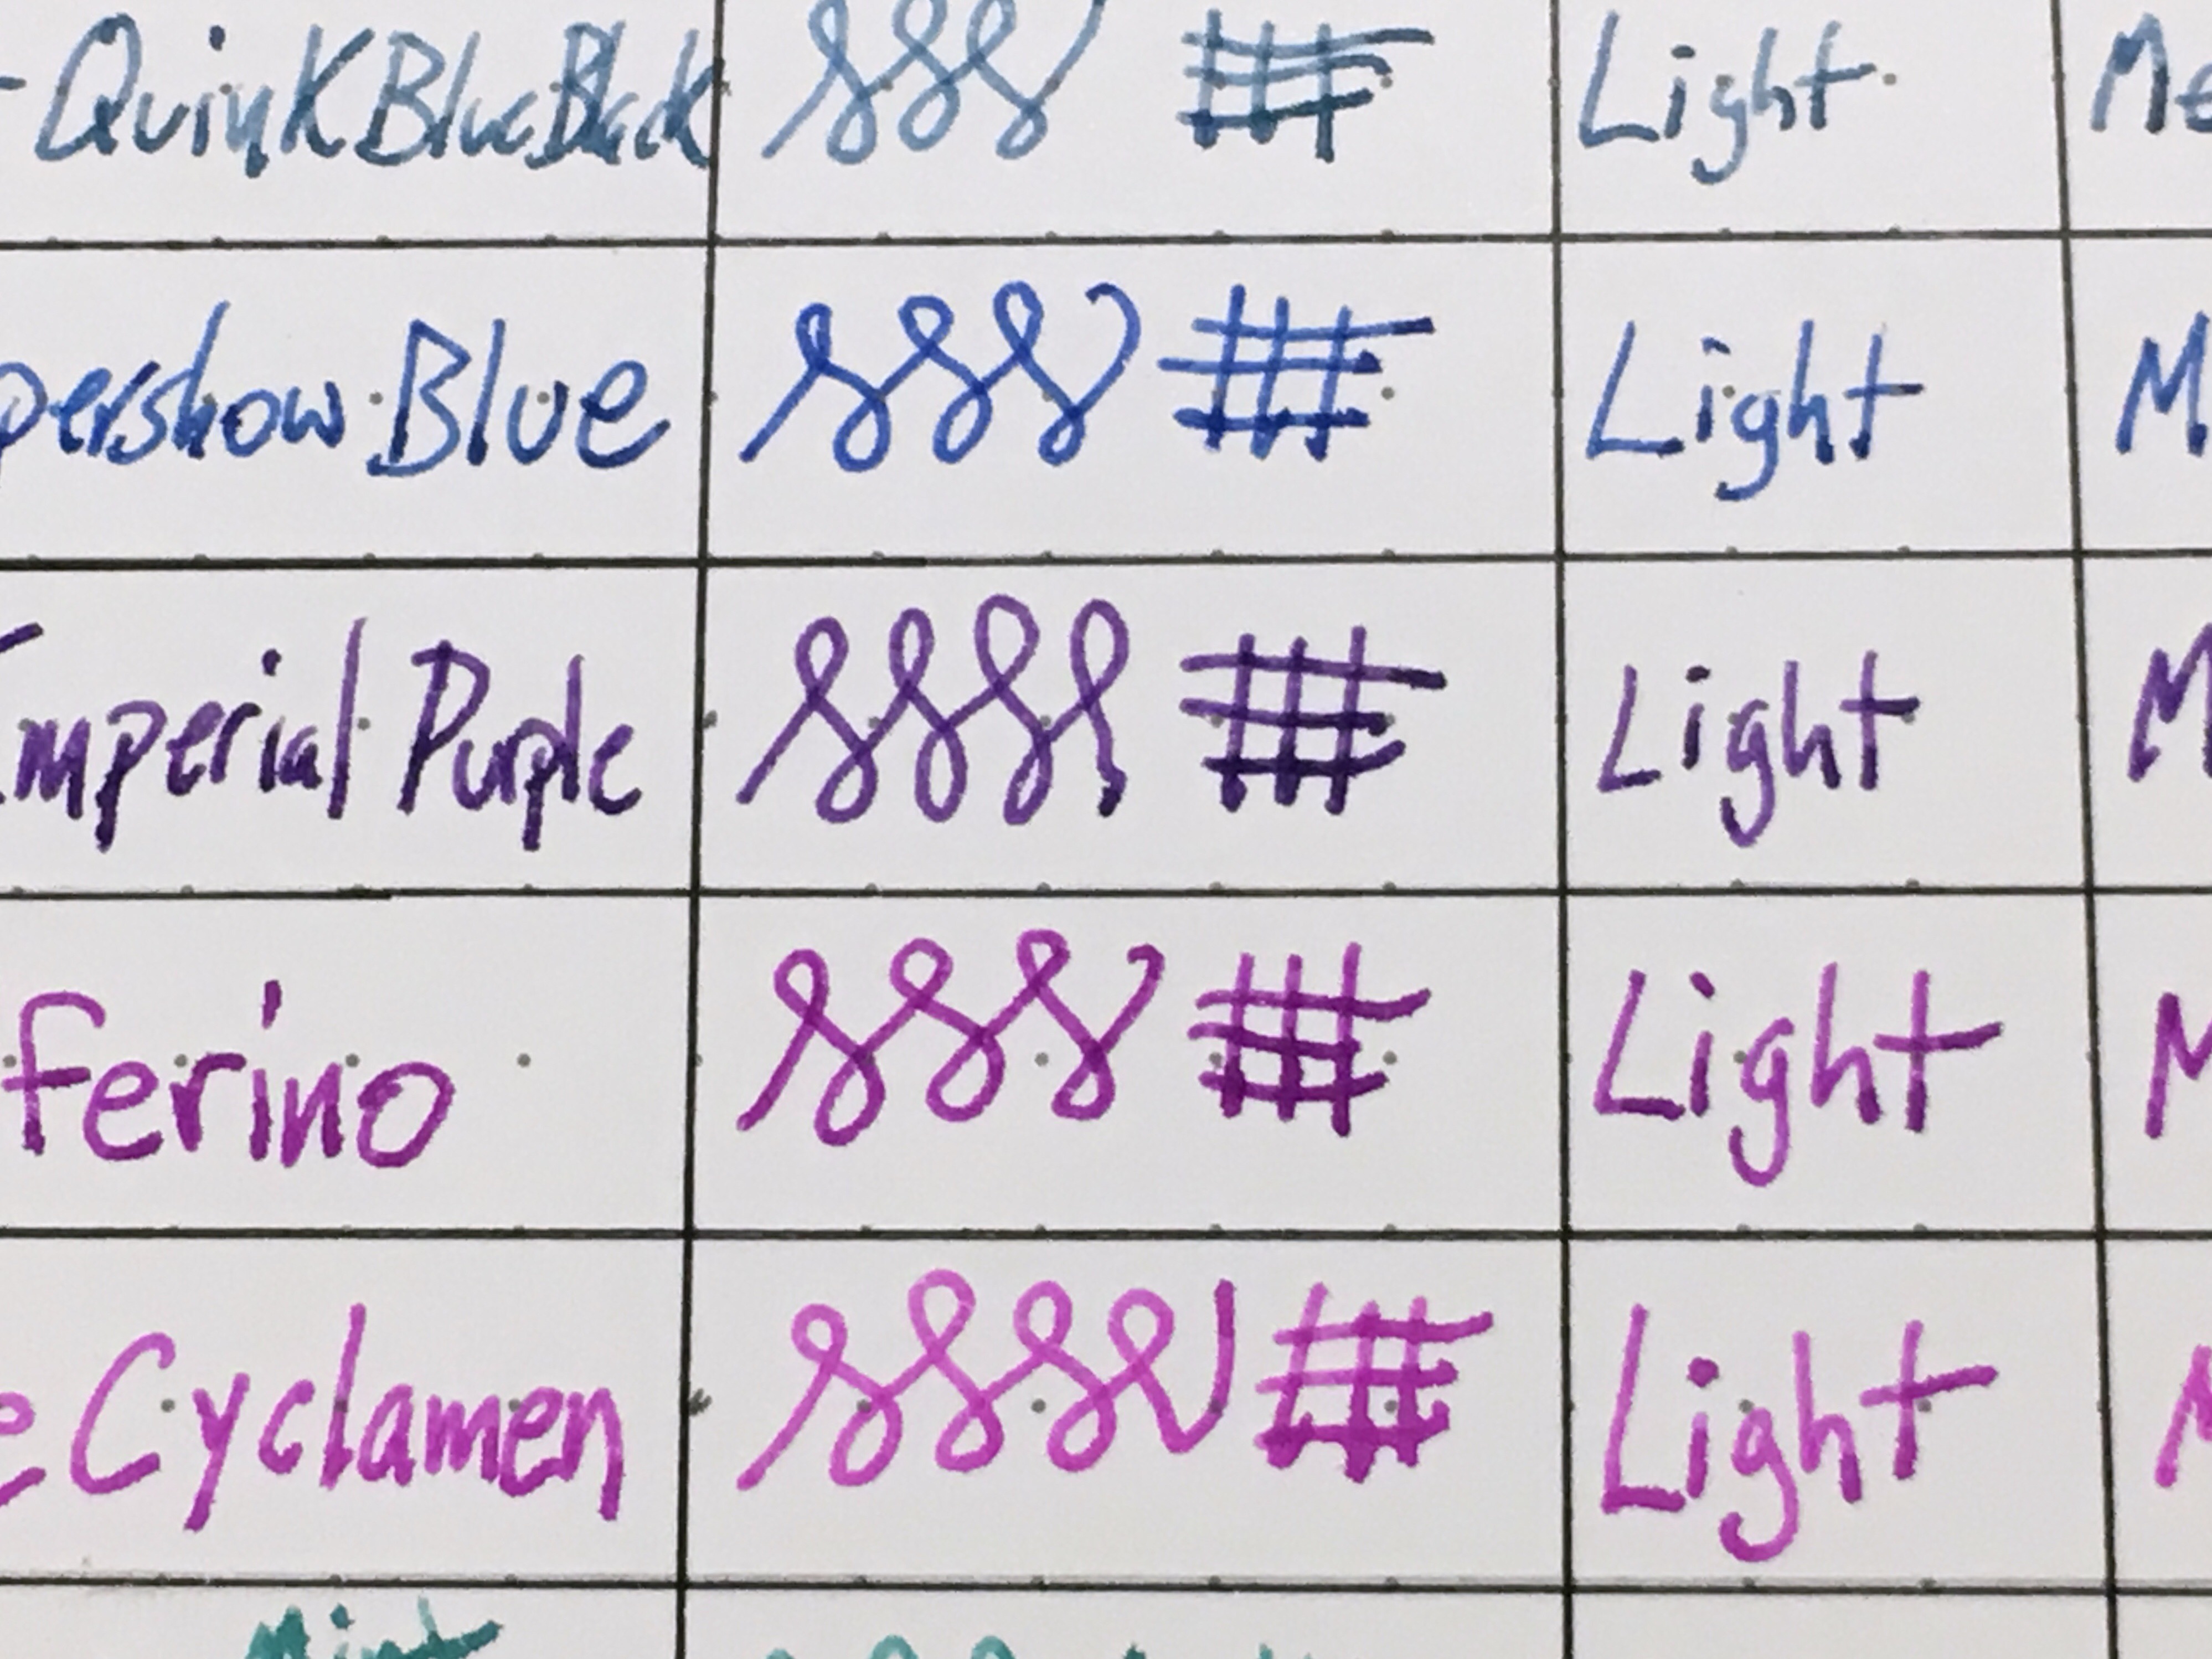 - Quink Blue Black Light Me
pershow Blue Light M
Imperial Purple Light M
ferino Light M
e Cyclamen Light M
Mint